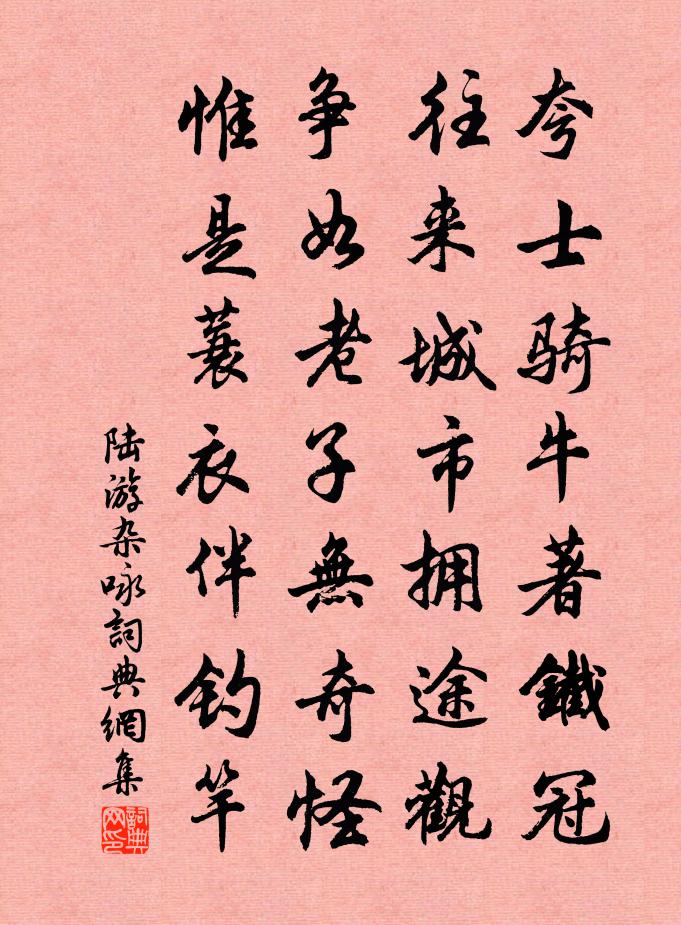 夸士骑牛著鐵冠
往来城市拥途觀
争如老子無奇怪
惟是蓑衣伴钓竿
陆游杂咏詞典網集
詞典网印